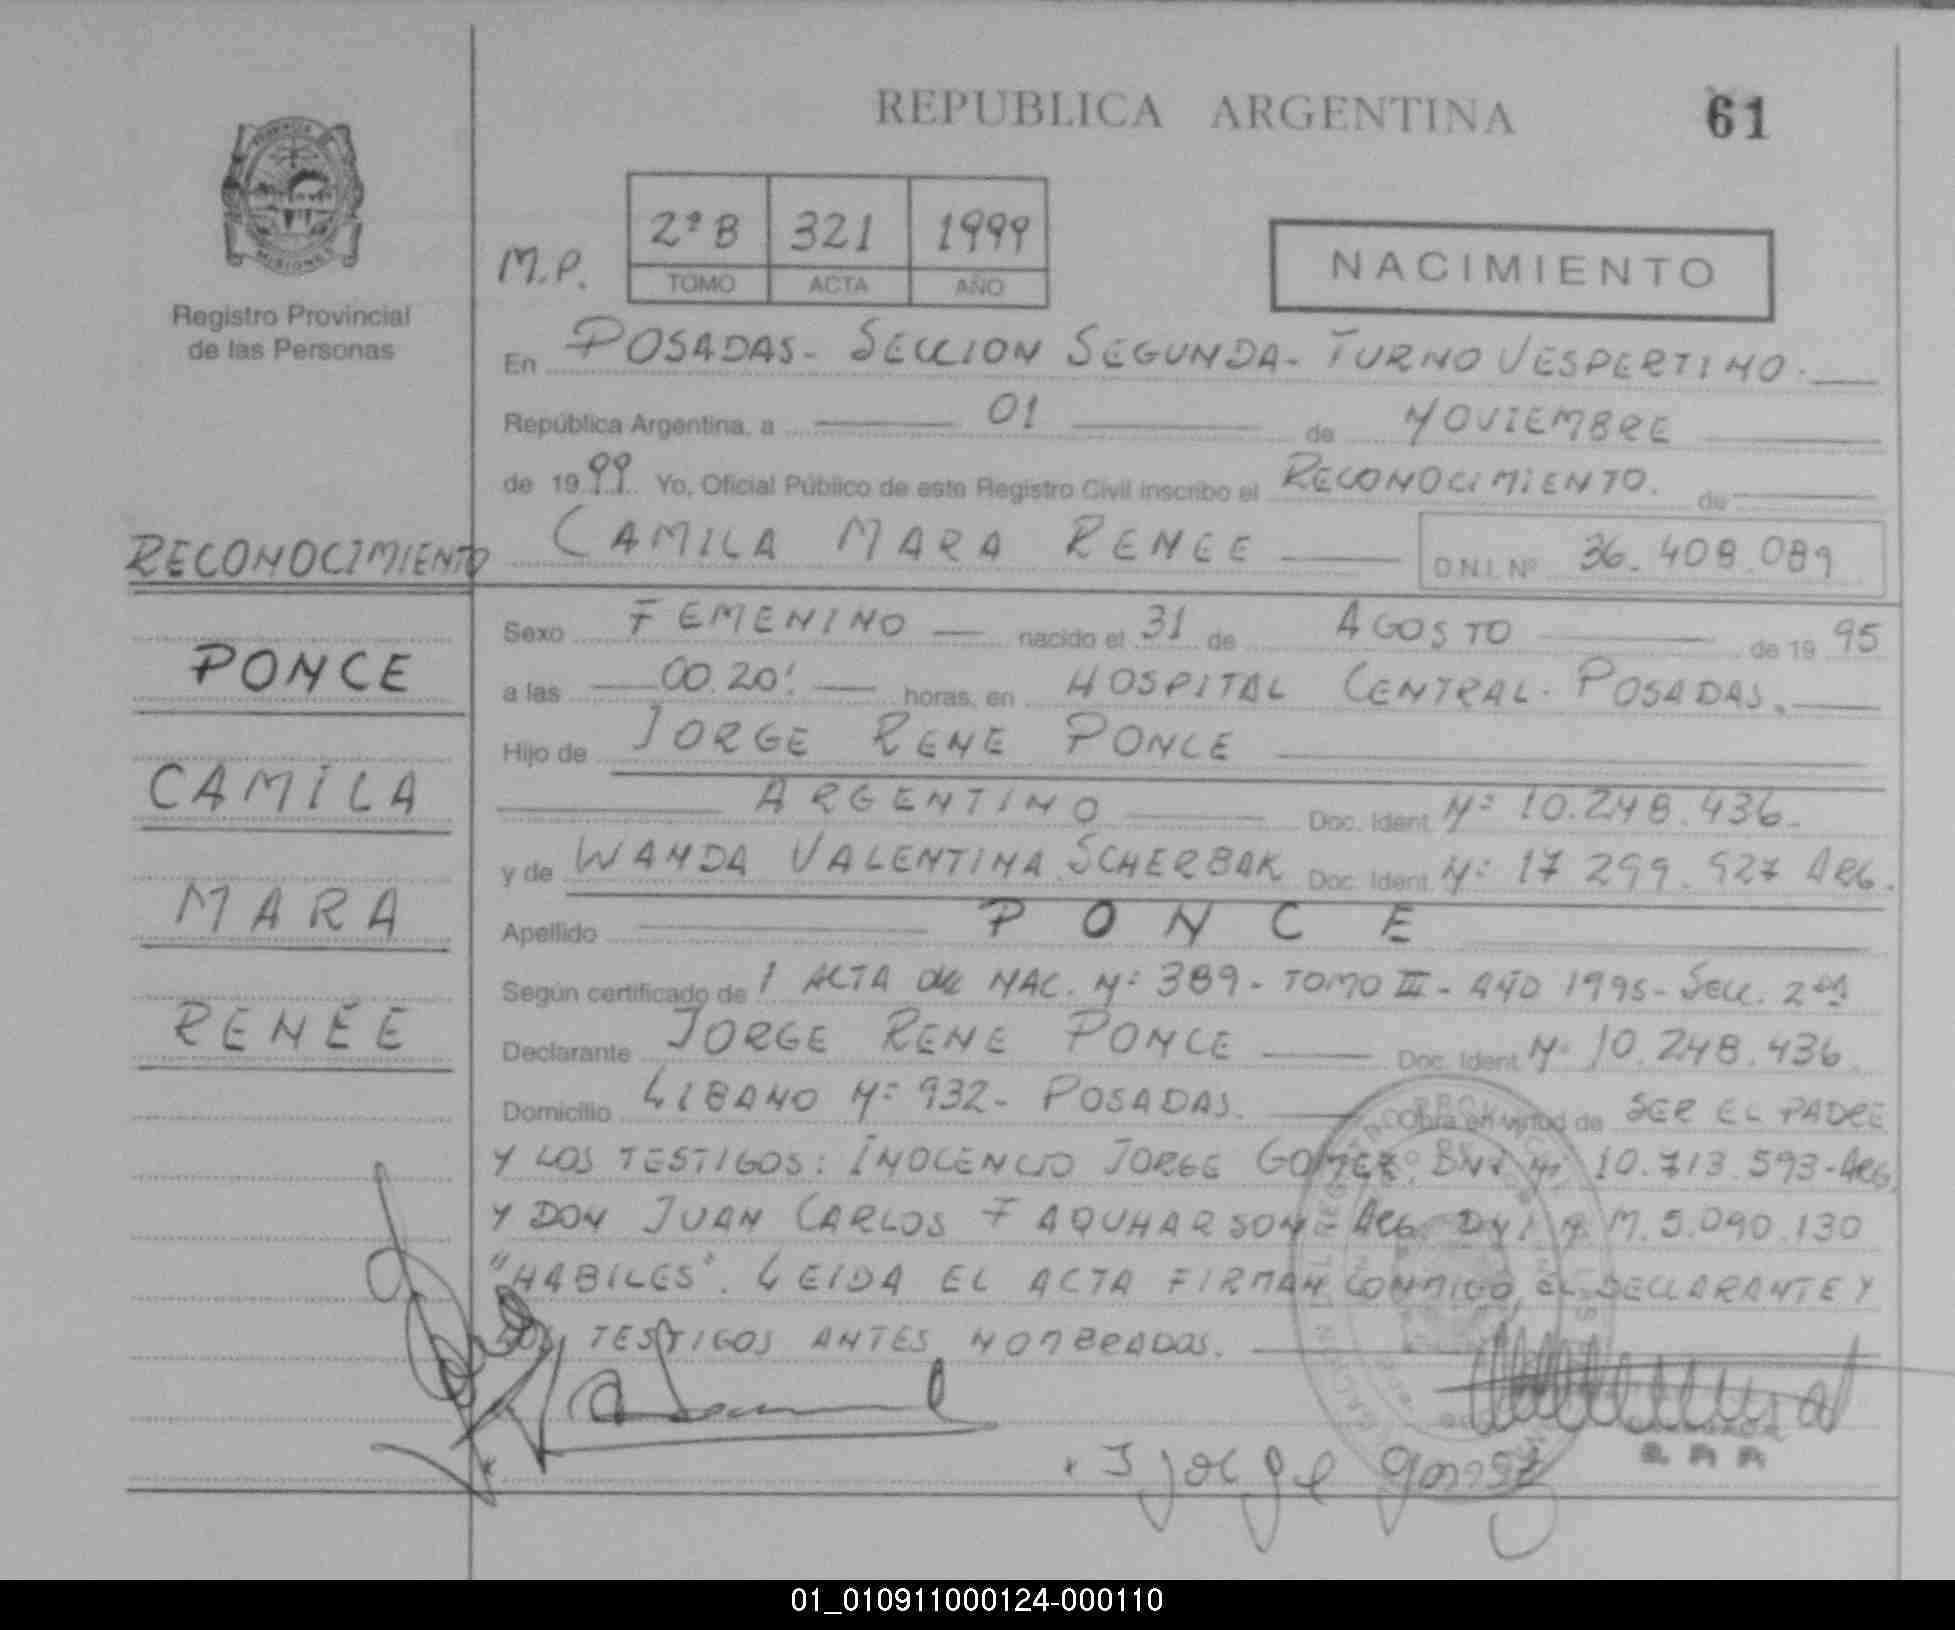 REPUBLICA ARGENTINA
61
Registro Provincial
de las Personas
M.P.
2ºB 321 1999
TOMO ACTA AÑO
NACIMIENTO
En POSADAS- SECCION SEGUNDA- TURNO VESPERTINO.
República Argentina, a 01 de NOVIEMBRE
de 1999 Yo, Oficial Público de este Registro Civil inscribo el RECONOCIMIENTO. de
CAMILA MARA RENEE D.N.I. Nº 36.408.089
RECONOCIMIENTO
PONCE
CAMILA
MARA
RENEE
Sexo FEMENINO nacido el 31 de AGOSTO de 1995
a las 00.20' horas, en HOSPITAL CENTRAL- POSADAS.
Hijo de JORGE RENE PONCE
ARGENTINO Doc. Ident. Nº 10.248.436-
y de WANDA VALENTINA SCHERBAK Doc. Ident. Nº 17 299.927 ARG.
Apellido PONCE
Según certificado de 1 ACTA de NAC. Nº 389- TOMO III- AÑO 1995- SECC. 2da
Declarante JORGE RENE PONCE Doc. Ident. Nº 10.248.436
Domicilio LIBANO Nº 932- POSADAS. Obra en virtud de SER EL PADRE
Y LOS TESTIGOS: INOCENCIO JORGE GOMEZ. DNI Nº 10.713.593-ARG.
Y DON JUAN CARLOS FAQUHARSON- ARG. DNI Nº M.5.090.130
"HABILES". LEIDA EL ACTA FIRMAN CONMIGO, EL DECLARANTE Y
LOS TESTIGOS ANTES NOMBRADOS.
I jorge gomez
01_010911000124-000110